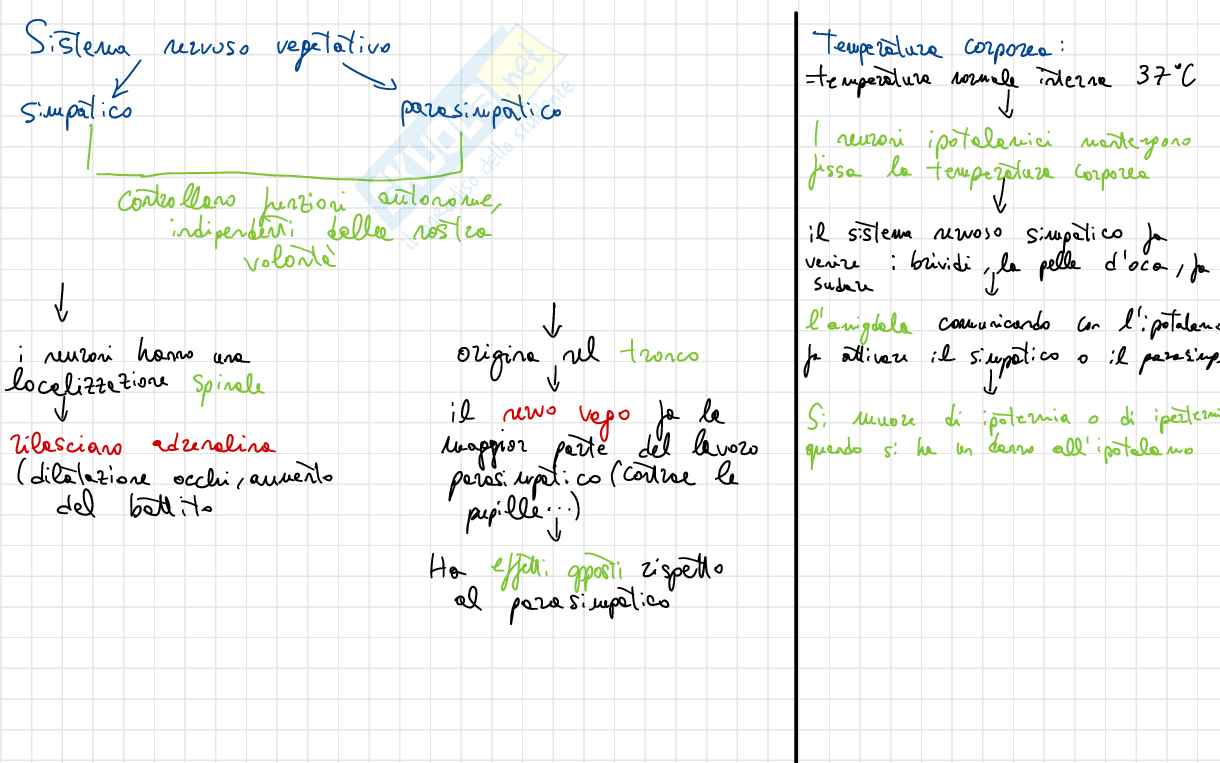 Sistema nervoso vegetativo
simpatico
parasimpatico
controllano funzioni autonome,
indipendenti dalla nostra
volontà
i neuroni hanno una
localizzazione spinale
rilasciano adrenalina
(dilatazione occhi, aumento
del battito
origina nel tronco
il nervo vago fa la
maggior parte del lavoro
parasimpatico (contrae le
pupille...)
Ha effetti opposti rispetto
al parasimpatico
Temperatura corporea:
=temperatura normale interna 37°C
I neuroni ipotalamici mantengono
fissa la temperatura corporea
il sistema nervoso simpatico fa
venire i brividi, la pelle d'oca, fa
sudare
l'amigdala comunicando con l'ipotalamo
fa attivare il simpatico o il parasimp
Si muore di ipotermia o di ipertermi
quando si ha un danno all'ipotalamo